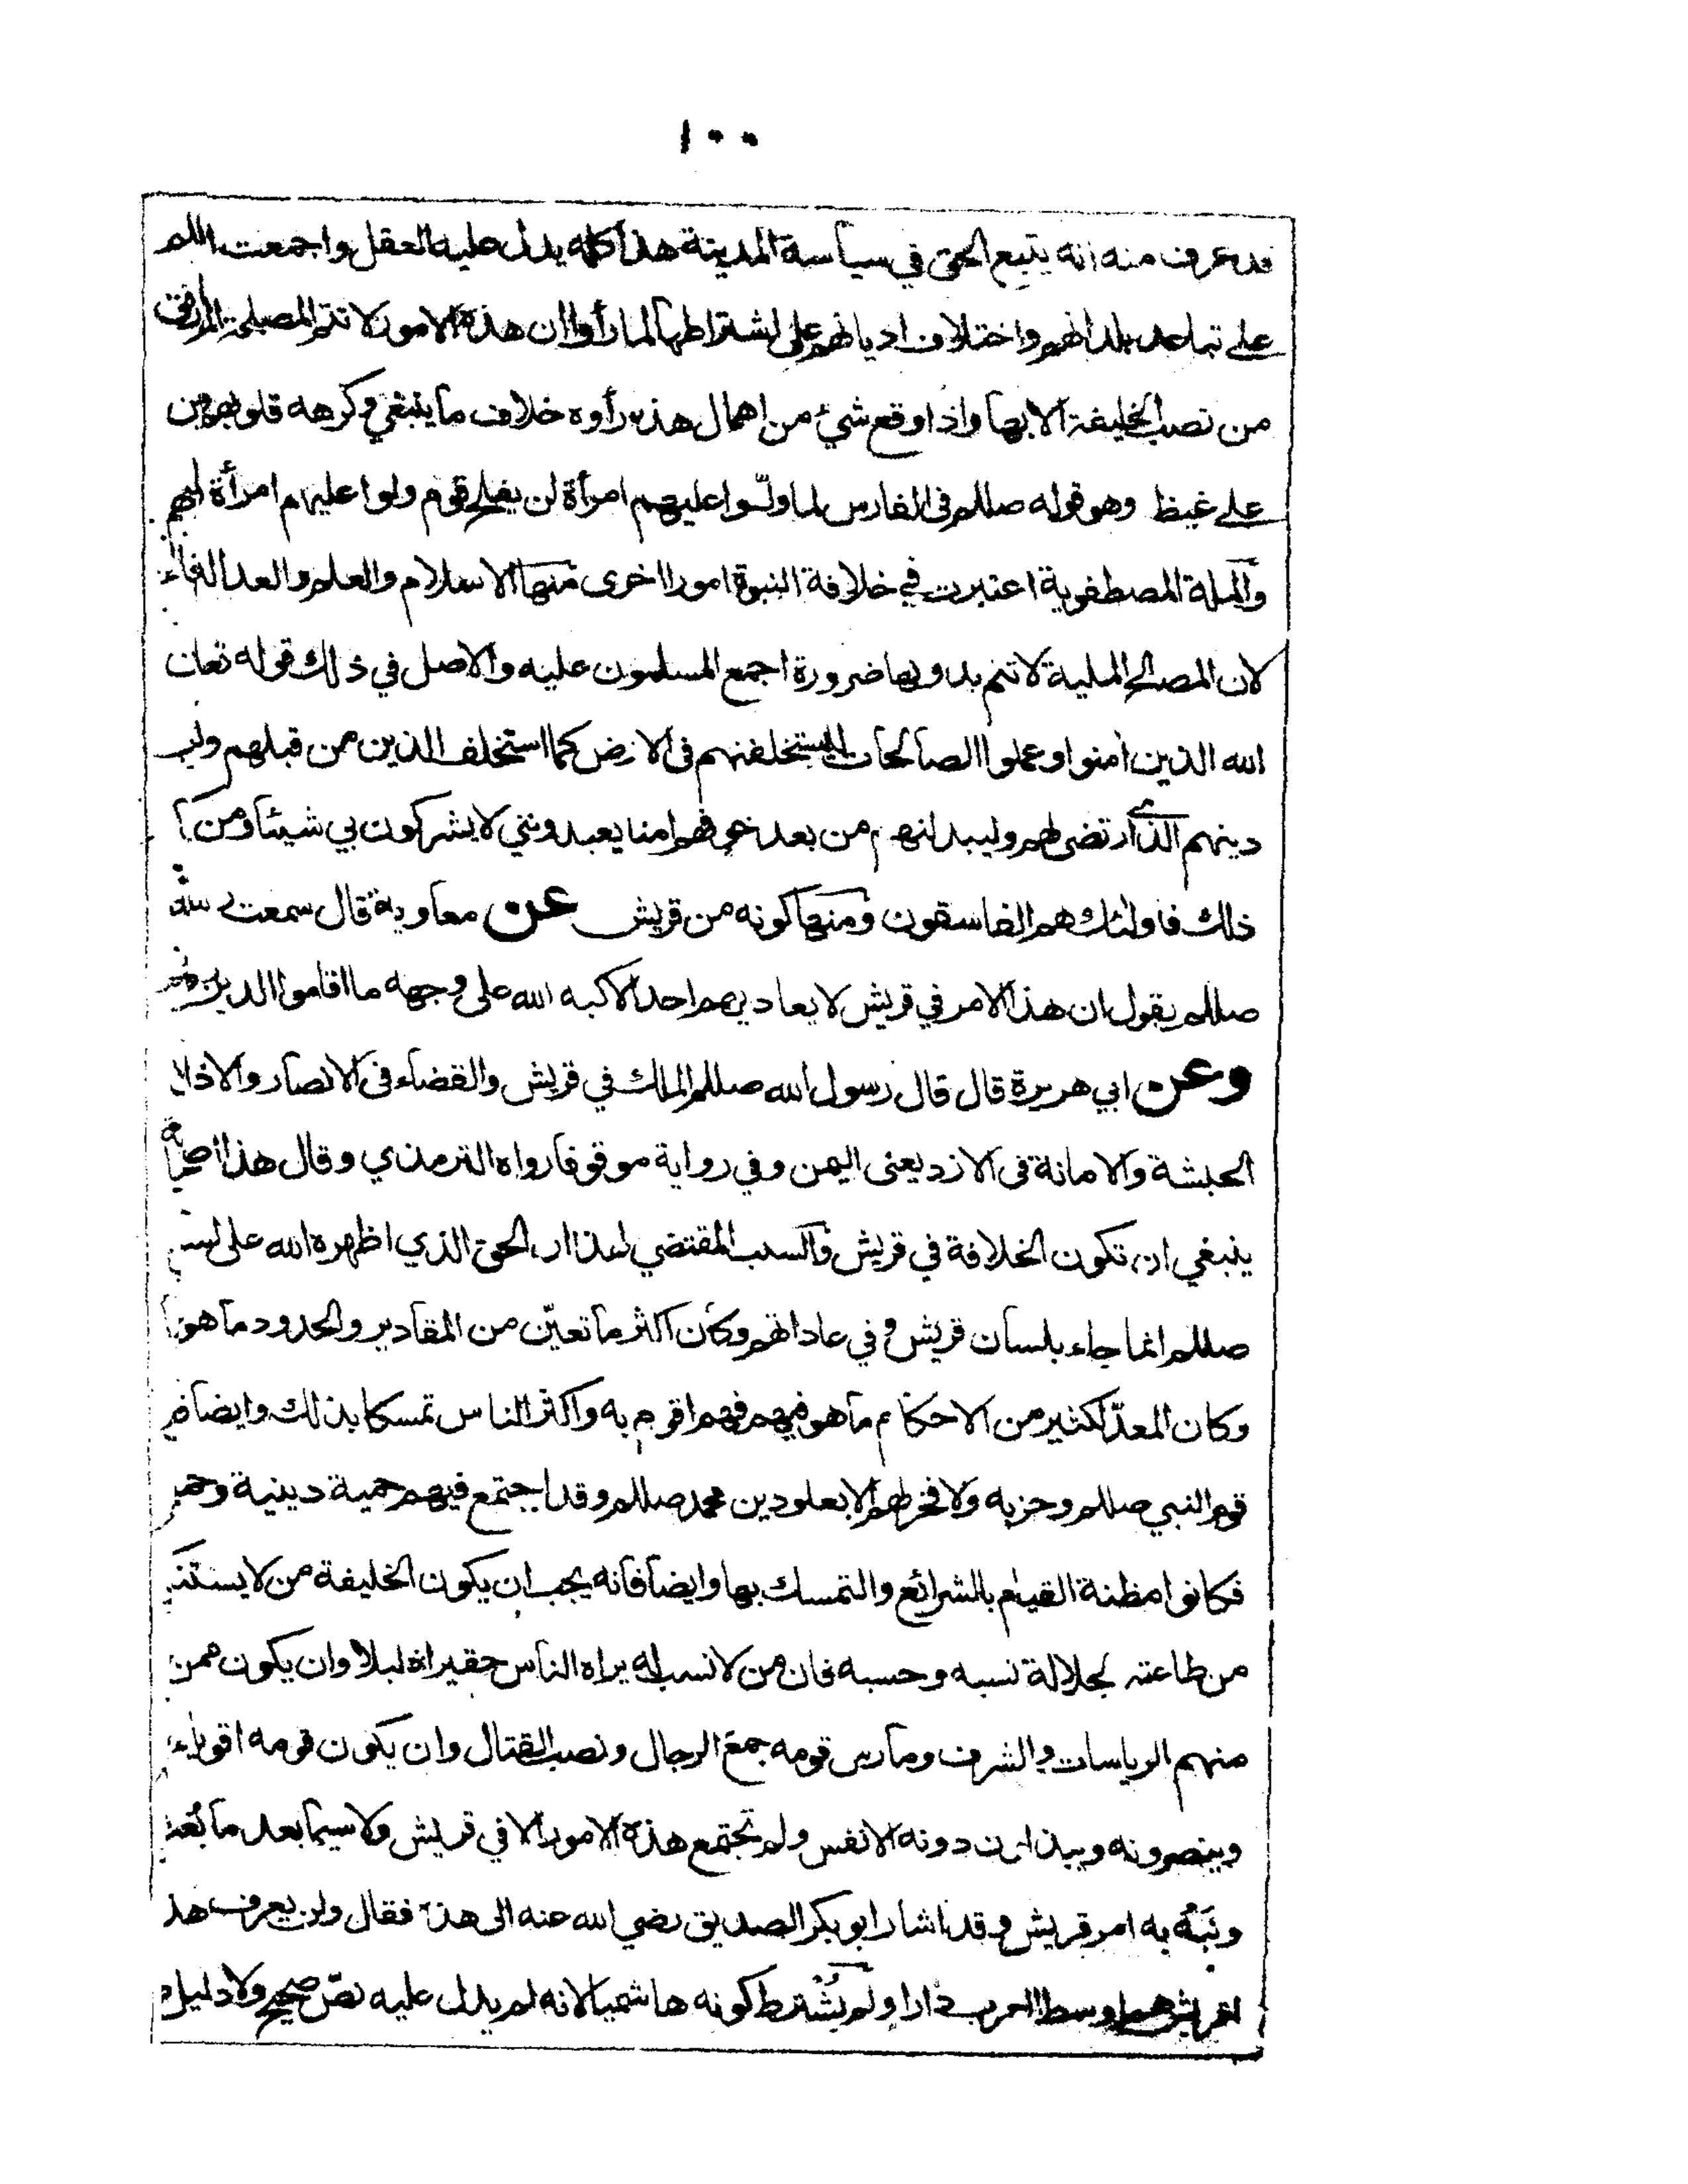 ١٠٠
قد عرف منه انه يتبع الحق في سياسة المدينة هذا كله يدل عليه العقل واجمعت
على تباعد بلدانهم واختلاف اديانهم على اشتراطها لما رأوا ان هذه الامور لا تتم المصلحة
من نصب الخليفة الا بها واذا وقع شيء من اهمال هذه رأوه خلاف ما ينبغي وكرهه قلوبهم
على غيظ وهو قوله صللم في الفارس لما ولّوا عليهم امرأة لن يفلح قوم ولوا عليهم امرأة
والملة المصطفوية اعتبرت في خلافة النبوة امورا اخرى منها الاسلام والعلم والعدالة
لان المصالح الملية لا تتم بدونها ضرورة اجمع المسلمون عليه والاصل في ذلك قوله
الله الذين امنوا وعملوا الصالحات ليستخلفنهم في الارض كما استخلف الذين من قبلهم
دينهم الذي ارتضى لهم وليبدلنهم من بعد خوفهم امنا يعبدونني لا يشركون بي شيئا ومن
ذلك فاولئك هم الفاسقون ومنها كونه من قريش عن معاوية قال سمعت
صللم يقول ان هذا الامر في قريش لا يعاديهم احد الا كبه الله على وجهه ما اقاموا الدين
وعن ابي هريرة قال قال رسول الله صللم الملك في قريش والقضاء في الانصار والاذان
الحبشة والامانة في الازد يعنى اليمن وفي رواية موقوفا رواه الترمذي وقال هذا اصح
ينبغي ان تكون الخلافة في قريش والسبب المقتضي لهذا ان الحق الذي اظهره الله على
صللم انما جاء بلسان قريش وفي عاداتهم وكان اكثر ما تعيّن من المقادير والحدود ما هو
وكان المعدّ لكثير من الاحكام ما هو فيهم فهم اقوم به واكثر الناس تمسكا بذلك وايضا
قوم النبي صللم وحزبه ولا فخر لهم الا بعلو دين محمد صللم وقد اجتمع فيهم حمية دينية
فكانوا مظنة القيام بالشرائع والتمسك بها وايضا فانه يجب ان يكون الخليفة من لا
من طاعته لجلالة نسبه وحسبه فان من لا نسب له يراه الناس حقيرا ذليلا وان يكون ممن
منهم الرياسات والشرف ومارس قومه جمع الرجال ونصب القتال وان يكون قومه اقوياء
وينصرونه ويبذلون دونه الانفس ولم تجتمع هذه الامور الا في قريش ولا سيما بعد ما
ونبّه به امر قريش وقد اشار ابو بكر الصديق رضي الله عنه الى هذه فقال ولن يعرف
اوسط العرب دارا ولم يشترط كونه هاشميا لانه لم يدل عليه نصّ صحيح ولا دليل